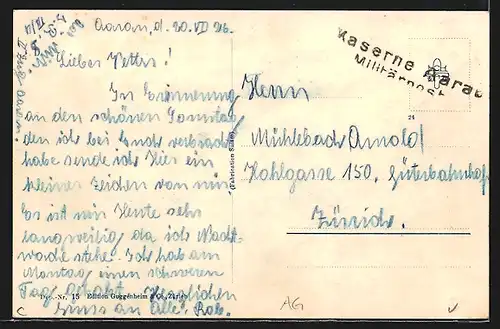 Aarau, d. 20. VII 26.
Lieber Vetter!
In Erinnerung
an den schönen Sonntag
den ich bei Euch verbracht
habe sende ich Hier ein
kleines Zeichen von mir.
Es ist mir Heute sehr
langweilig da ich Wacht-
wache stehe. Ich hab am
Montag einen schweren
Tag gehabt. Herzlichen
Gruss an Alle, Rob.
Kaserne Aarau
Militärpost
24
Herrn
Mühlebach Arnold
Hohlgasse 150, Güterbahnhof
Zürich.
(Fabrication Suisse)
Dep.-Nr. 15 Edition Guggenheim & Co., Zürich
AG
C